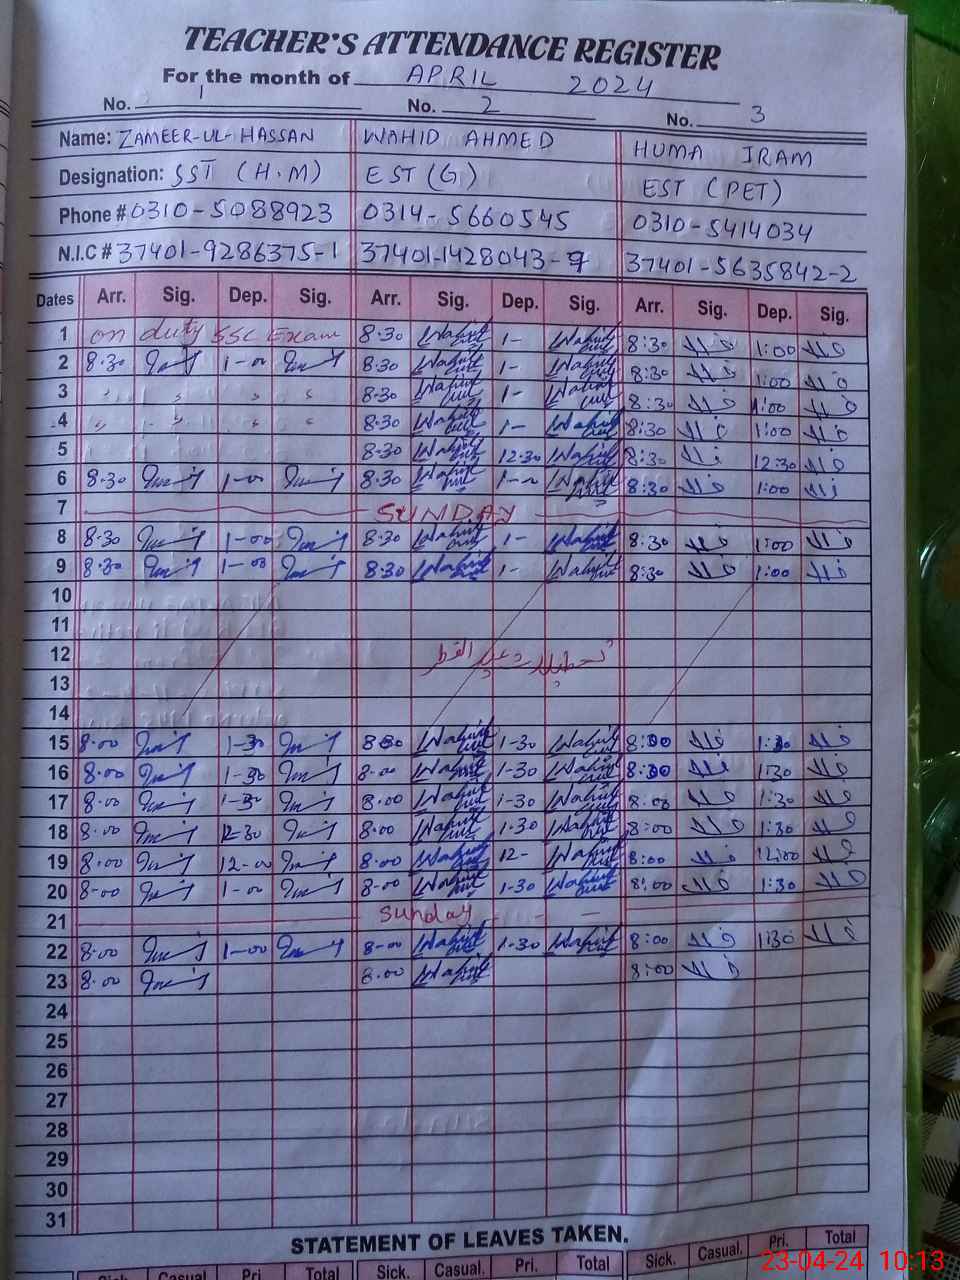 TEACHER'S ATTENDANCE REGISTER
For the month of APRIL 2024
No. 1 No. 2 No. 3
Name: ZAMEER-UL-HASSAN WAHID AHMED HUMA IRAM
Designation: SST (H.M) EST (G) EST (PET)
Phone # 0310-5088923 0314-5660545 0310-5414034
N.I.C # 37401-9286375-1 37401-1428043-9 37401-5635842-2
Dates Arr. Sig. Dep. Sig. Arr. Sig. Dep. Sig. Arr. Sig. Dep. Sig.
1 on duty SSC Exam 8.30 Wahid 1- Wahid 8:30 1:00
2 8.30 1-00 8.30 Wahid 1- Wahid 8:30 1:00
3 " " " " 8.30 Wahid 1- Wahid 8:30 1:00
4 " " " " 8.30 Wahid 1- Wahid 8:30 1:00
5 8.30 Wahid 12.30 Wahid 8:30 12:30
6 8.30 1-00 8.30 Wahid 1-00 Wahid 8:30 1:00
7 SUNDAY
8 8.30 1-00 8.30 Wahid 1- Wahid 8:30 1:00
9 8.30 1-00 8.30 Wahid 1- Wahid 8:30 1:00
10
11
12 تعطیلات عید الفطر
13
14
15 8.00 1-30 8 30 Wahid 1-30 Wahid 8:30 1:30
16 8.00 1-30 8.00 Wahid 1-30 Wahid 8:30 1:30
17 8.00 1-30 8.00 Wahid 1-30 Wahid 8:00 1:30
18 8.00 12-30 8.00 Wahid 1.30 Wahid 8:00 1:30
19 8.00 12-00 8.00 Wahid 12- Wahid 8:00 12:00
20 8-00 1-00 8-00 Wahid 1-30 Wahid 8:00 1:30
21 Sunday
22 8.00 1-00 8-00 Wahid 1-30 Wahid 8:00 1:30
23 8.00 8.00 Wahid 8:00
24
25
26
27
28
29
30
31
STATEMENT OF LEAVES TAKEN.
Sick. Casual. Pri. Total Sick. Casual. Pri. Total Sick. Casual. Pri. Total
23-04-24 10:13